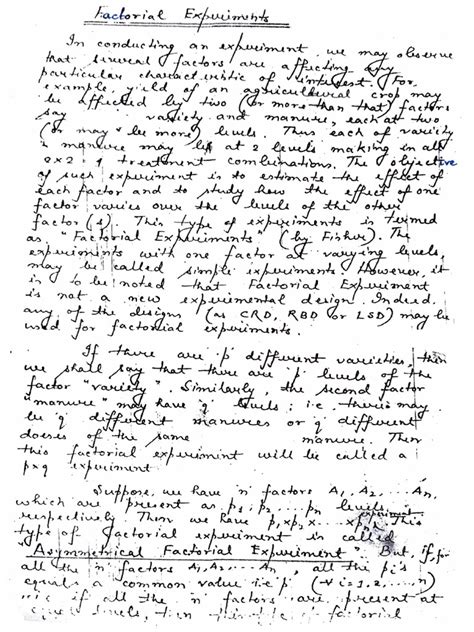 Factorial Experiments
In conducting an experiment, we may observe
that several factors are affecting any
particular characteristic of interest. For
example, yield of an agricultural crop may
be affected by two (or more than that) factors
say variety and manure, each at two
(or may be more) levels. Thus each of variety
& manure may be at 2 levels making in all
2x2 treatment combinations. The objective
of such experiment is to estimate the effect of
each factor and to study how the effect of one
factor varies over the levels of the other
factor(s). This type of experiments is termed
as "Factorial Experiments" (by Fisher). The
experiments with one factor at varying levels,
may be called simple experiments. However, it
is to be noted that Factorial Experiment
is not a new experimental design. Indeed,
any of the designs (as CRD, RBD or LSD) may be
used for factorial experiments.
If there are 'p' different varieties, then
we shall say that there are 'p' levels of the
factor "variety". Similarly, the second factor
"manure" may have 'q' levels; i.e. there may
be 'q' different manures or q' different
doses of the same manure. Then
this factorial experiment will be called a
pxq experiment
Suppose, we have 'n' factors A1, A2, ... An,
which are present as p1, p2, ... pn levels
respectively. Then we have p1xp2x...xpn. This
type of factorial experiment is called
"Asymmetrical Factorial Experiment". But, if, for
all the 'n' factors A1, A2, ... An, all the pi's
equals a common value i.e 'p' (∀ i=1,2,...,n)
i.e if all the 'n' factors are present at
levels, then factorial